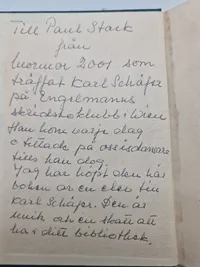 Till Paul Stark
från
mormor 2001 som
träffat Karl Schäfer
på Engelmanns
skridskoklubb i Wien
Han kom varje dag
o tittade på oss isdansare
tills han dog.
Jag har köpt den här
boken av en elev till
Karl Schäfer. Den är
unik och en skatt att
ha i ditt bibliothek.